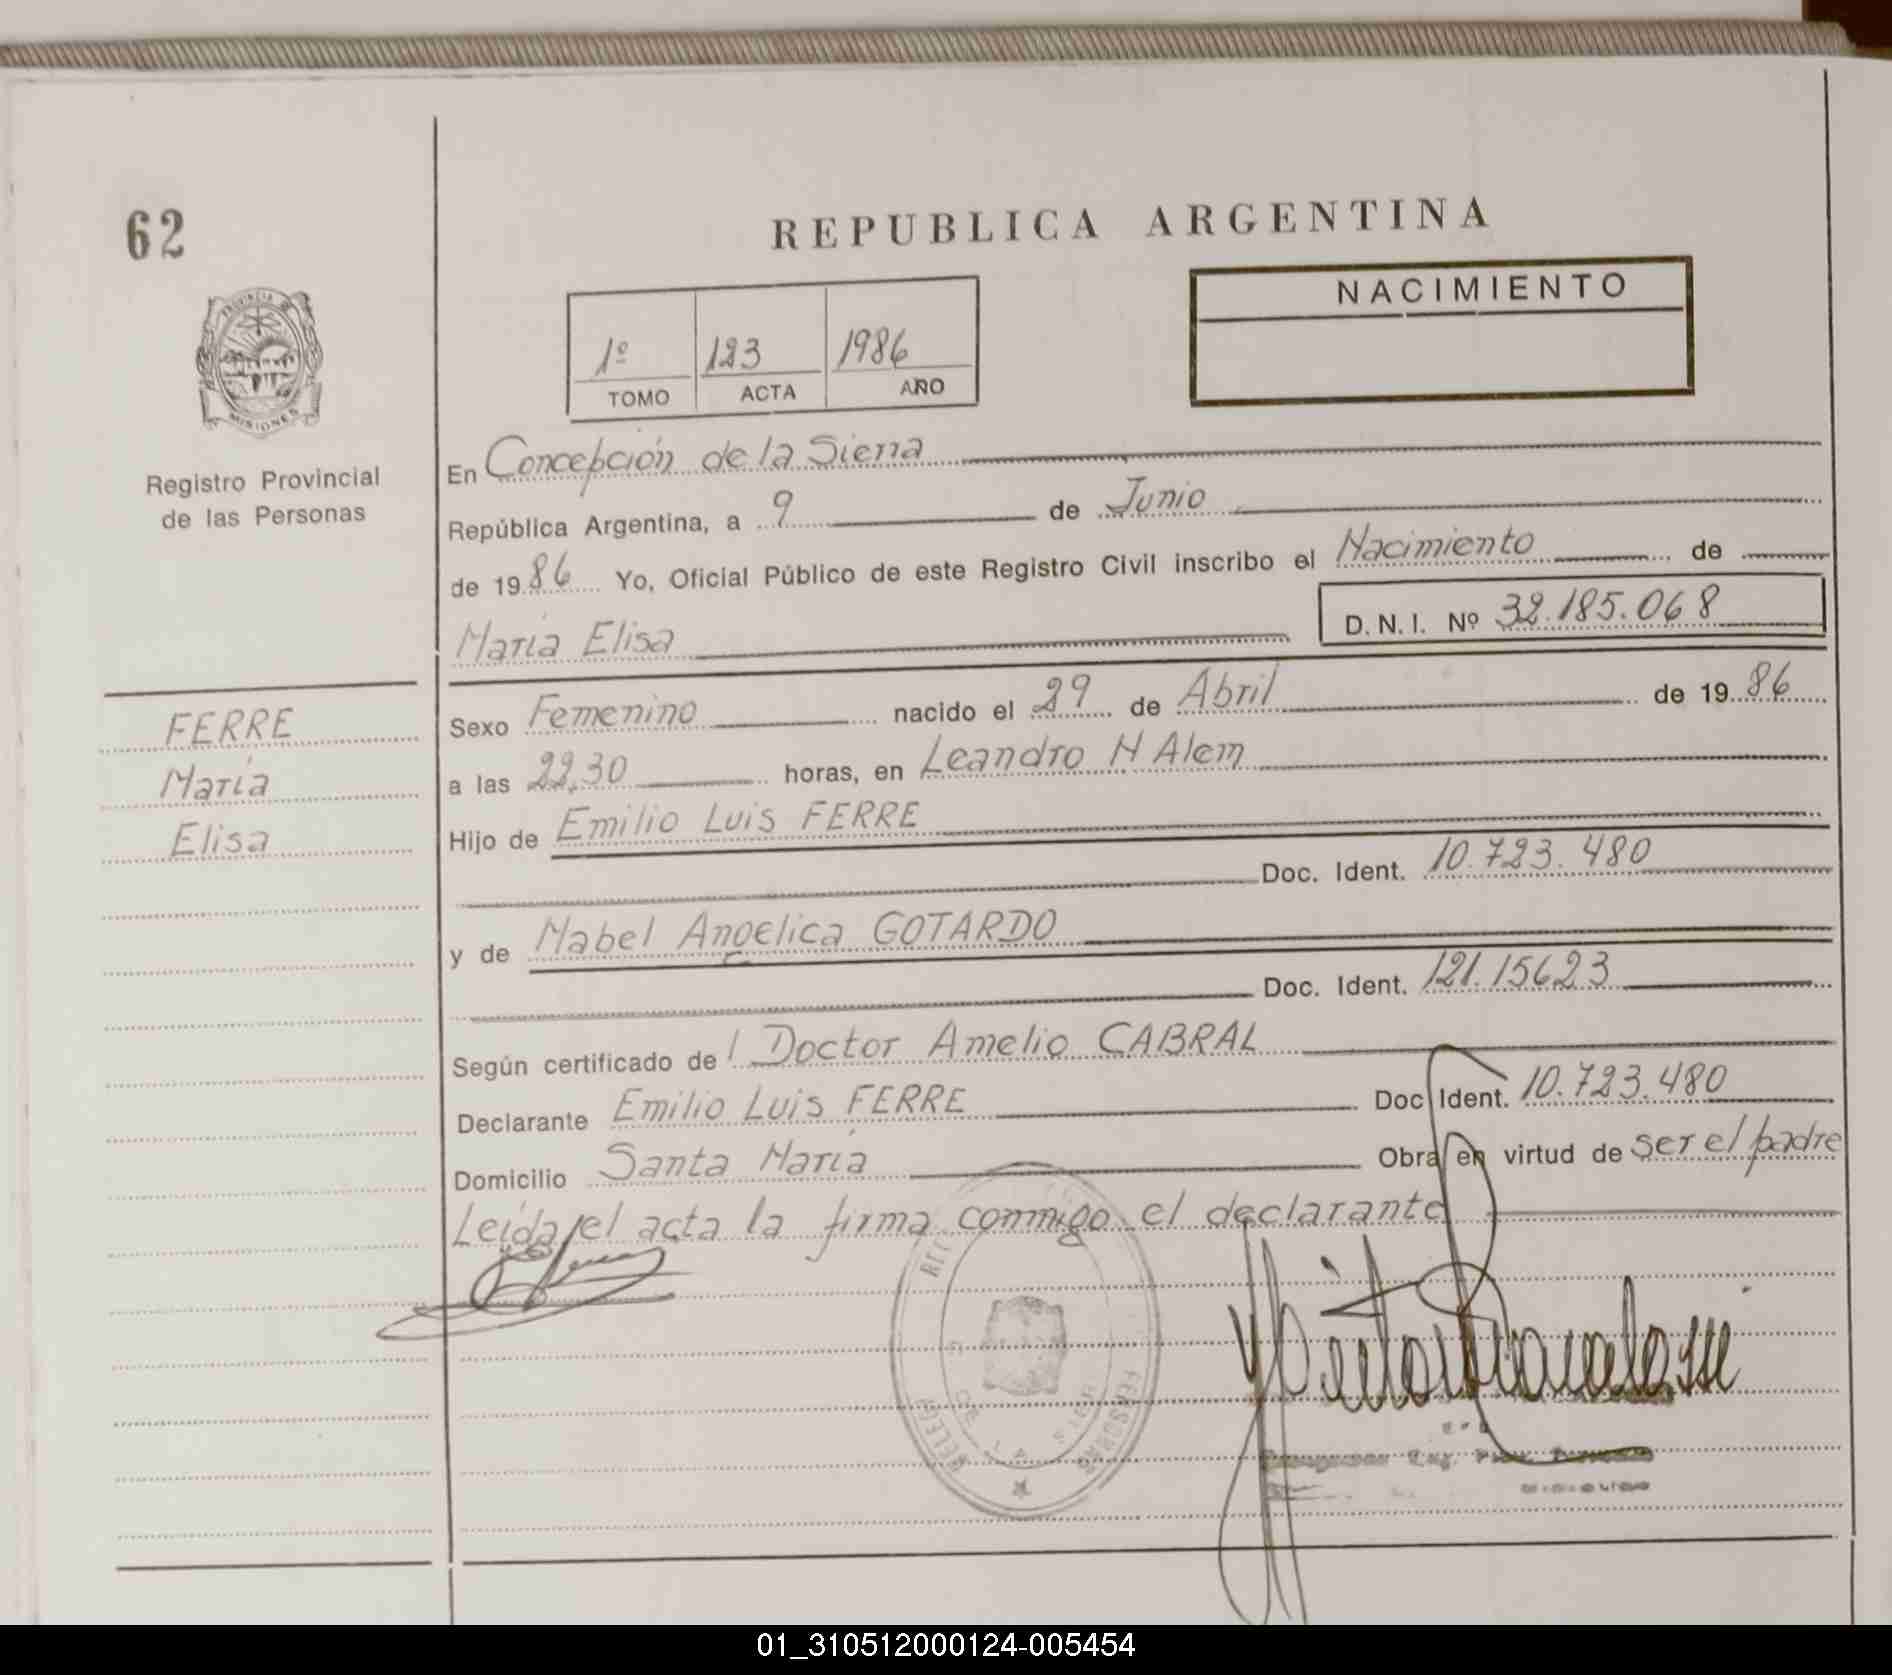 62
REPUBLICA ARGENTINA
NACIMIENTO
1º 123 1986
TOMO ACTA AÑO
PROVINCIA DE
MISIONES
Registro Provincial
de las Personas
En Concepción de la Sierra
República Argentina, a 9 de Junio
de 1986 Yo, Oficial Público de este Registro Civil inscribo el Nacimiento de
María Elisa D.N.I. Nº 32.185.068
FERRE
María
Elisa
Sexo Femenino nacido el 29 de Abril de 1986
a las 22,30 horas, en Leandro N Alem
Hijo de Emilio Luis FERRE
Doc. Ident. 10.723.480
y de Mabel Angelica GOTARDO
Doc. Ident. 121.15623
Según certificado del Doctor Amelio CABRAL
Declarante Emilio Luis FERRE Doc Ident. 10.723.480
Domicilio Santa María Obra en virtud de ser el padre
Leída el acta la firma conmigo el declarante
01_310512000124-005454